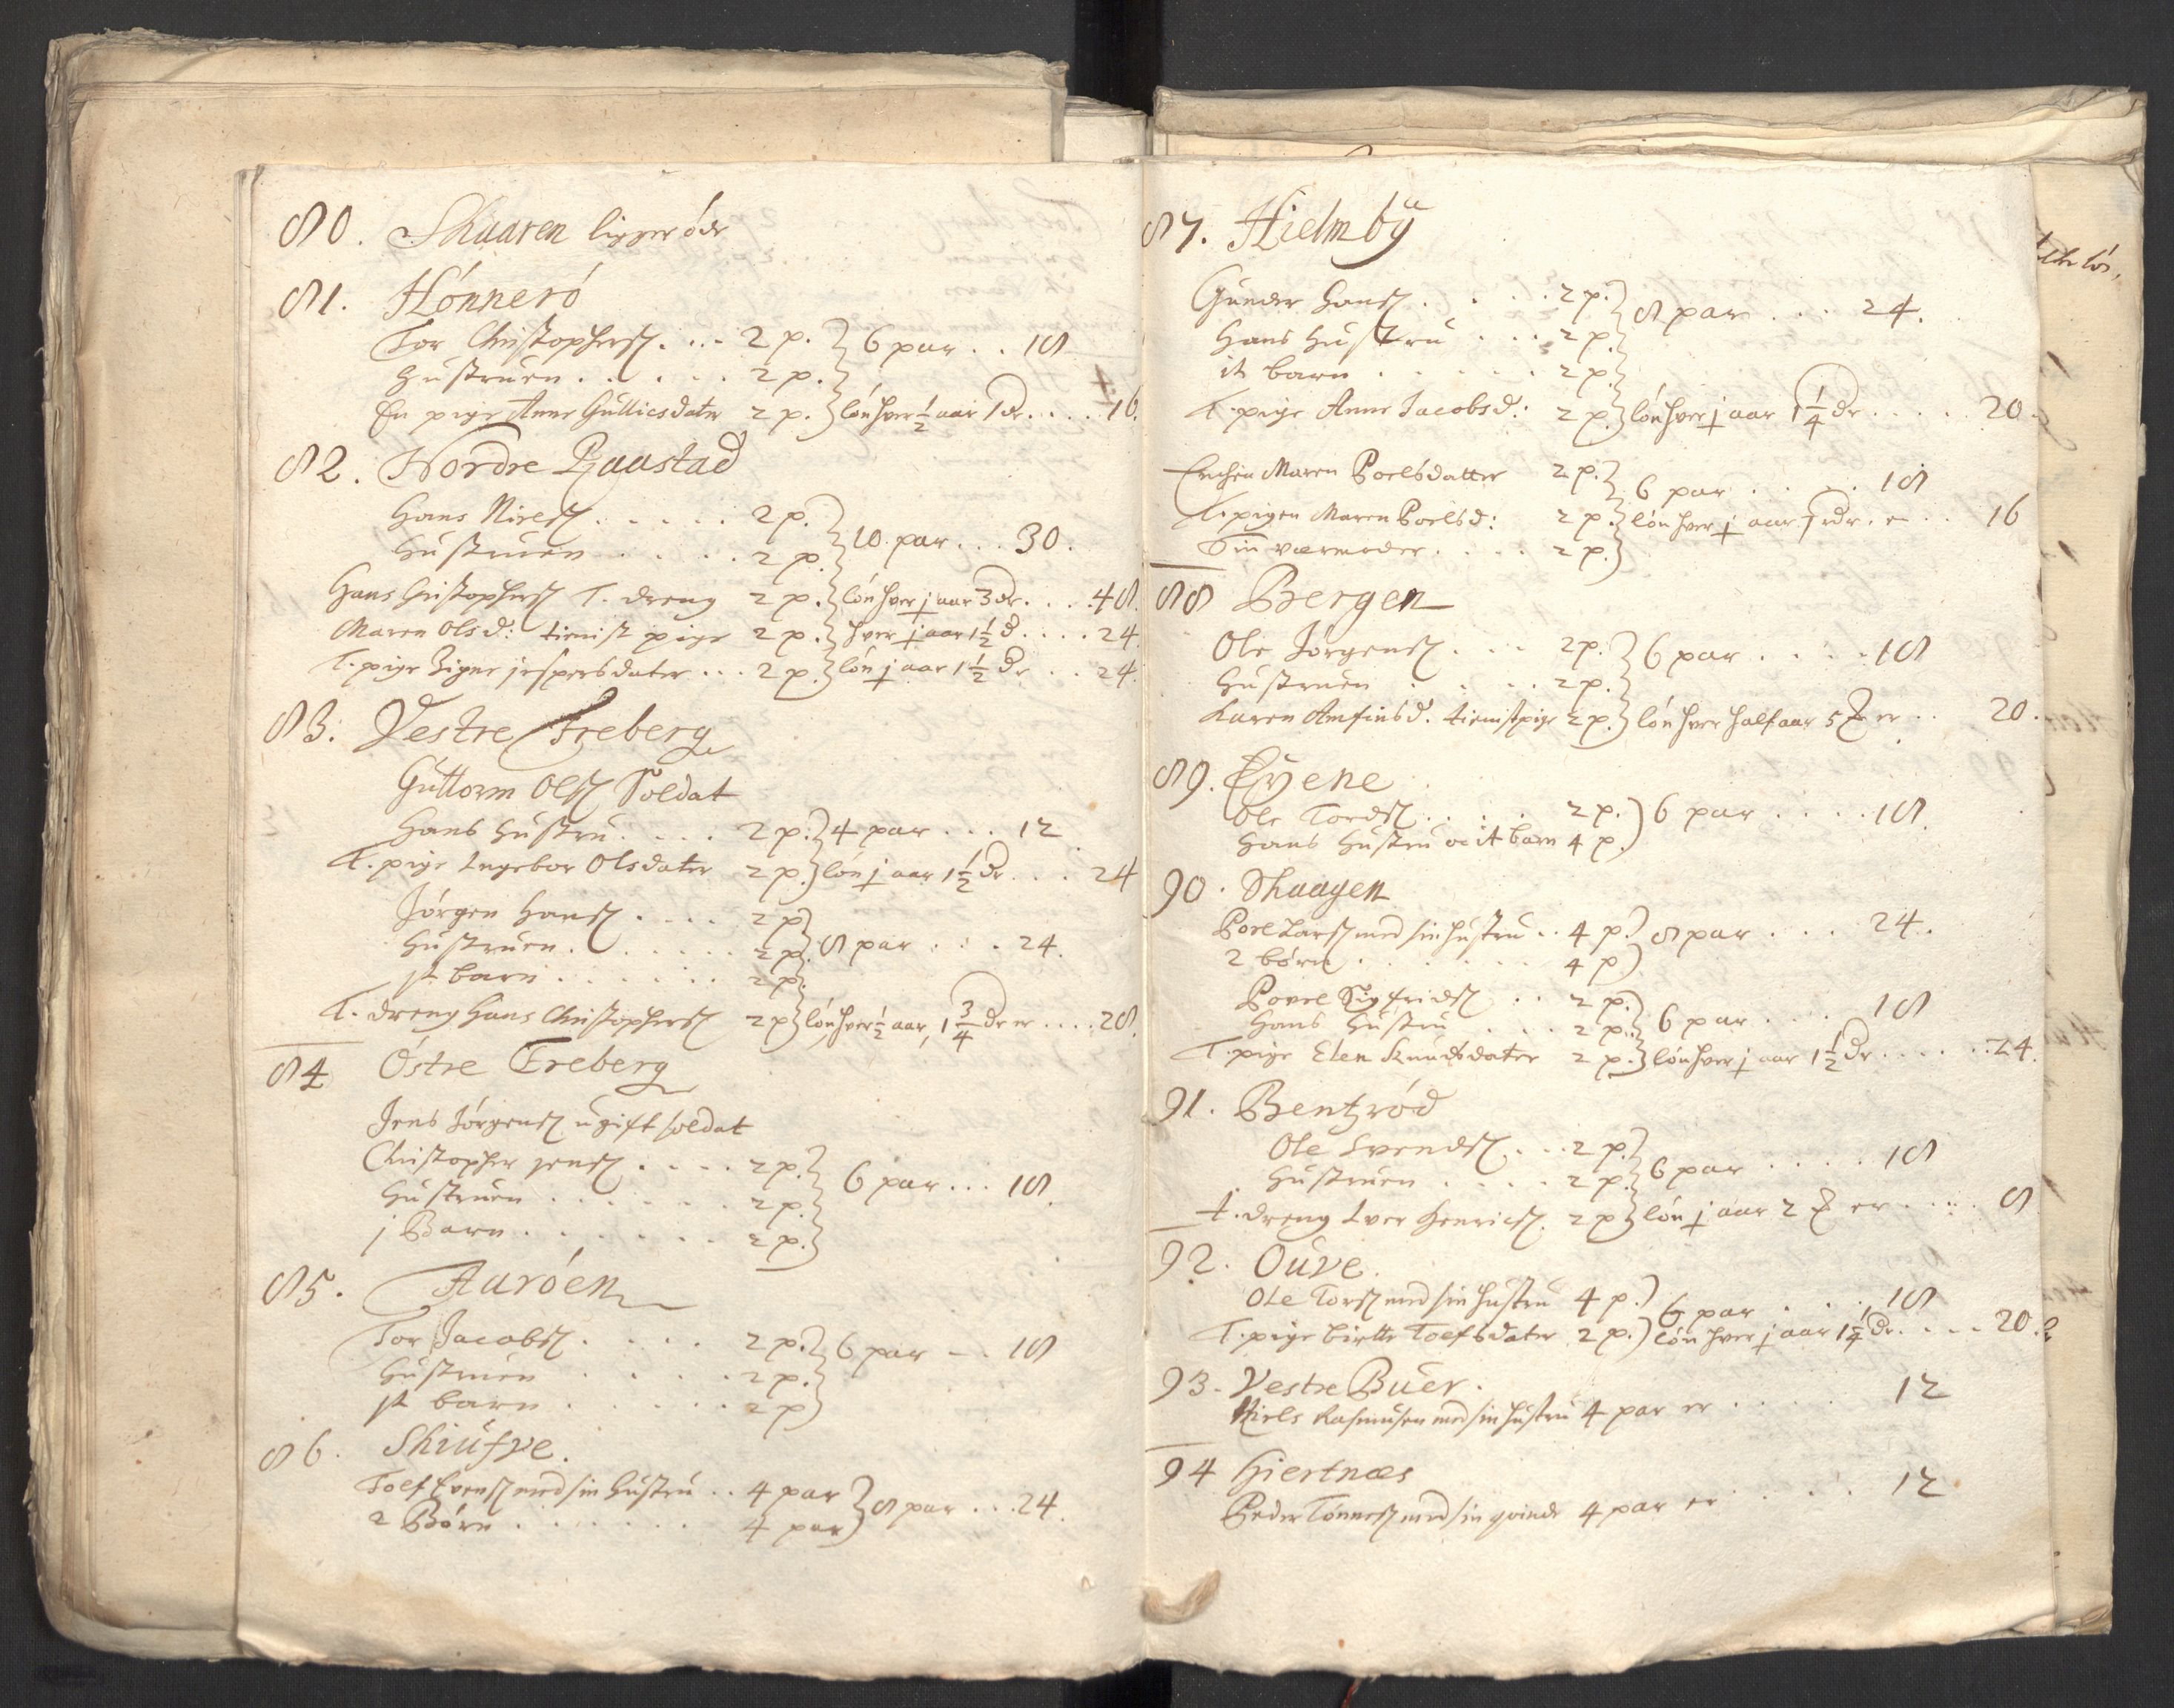 80. Skaaren ligger öde
81. Hönnerö
Tor Christophersz. ... 2 p. } 6 par .. 18
Hustruen. . . . . . 2 p. }
En pige Anne Gulliesdater 2 p. } lön hver ½ aar 1 dr. ... 16.
82. Nordre Raastad
Hans Nielsz. . . . . 2 p. } 10 par ... 30.
Hustruen . . . . . 2 p. }
Hans Christophersz T. dreng 2 p. } lön hver j aar 3 dr. . . . 48.
Maren Olsd: tienist pige 2 p. } hver j aar 1½ d . . . . 24
T. pige Zigne jespersdater ... 2 p. } lön j aar 1½ dr . . 24.
83. Vestre Freberg
Guttorm Olsz Soldat
Hans Hustru. . . . 2 p. } 4 par ... 12
T. pige Ingebor Olsdater 2 p. } lön j aar 1½ dr . . . 24
Jörgen Hansz . . . . 2 p }
Hustruen. . . . . . 2 p. } 8 par . . . 24.
jt barn . . . . . . 2 p. }
T. dreng Hans Christophersz 2 p } lön hver ½ aar, 1¾ dr er .... 28.
84 Östre Freberg
Jens Jörgensz ugift soldat
Christopher jensz . . . . 2 p. } 6 par ... 18.
Hustruen . . . . . . 2 p. }
j Barn . . . . . . 2 p. }
85. Auröen
Tor Jacobsz. . . . . 2 p. } 6 par - . 18
Hustruen . . . . 2 p. }
jt barn . . . . . 2 p }
86. Skiufve.
Tolf Evensz med sin Hustru .. 4 par } 8 par ... 24.
2 Börn . . . . . . 4 par }
87. Hielmbÿ
Gunder Hansz . . . . 2 p. } 8 par . . . 24.
Hans Hustru . . . 2 p. }
it barn . . . . . 2 p. }
T. pige Anne Jacobsd: 2 p. } lön hver j aar 1¼ dr . . . . 20.
Enchen Maren Poelsdatter 2 p. } 6 par . . . . 18
T. pigen Maren Poelsd: 2 p. } lön hver j aar 1 rdr. er . . 16
Sin værmoder. . . . 2 p. }
88 Bergen
Ole Jörgensz . . . 2 p. } 6 par . . . . 18
Hustruen . . . . 2 p. }
Karen Amfinsd. tienistpige 2 p. } lön hver half aar 5 er .. 20.
89. Eyene
Ole Tordsz . . . . 2 p. ) 6 par . . . . 18.
Hans Hustru oc it barn 4 p. )
90. Skaagen
Poel Larsz med sin Hustru .. 4 p. ) 8 par . . . 24.
2 börn . . . . . . 4 p )
Povel Sigfridsz . . 2 p. }
Hans Hustru . . . 2 p. } 6 par . . . . 18
T. pige Elen Knudsdater 2 p. } lön hver j aar 1½ dr . . . . . 24.
91. Bentzröd
Ole Svendsz. . . . 2 p. } 6 par . . . . 18
Hustruen . . . . 2 p. }
t. dreng Iver Henricsz. 2 p } lön j aar 2 er . . . . 8
92. Ouve.
Ole Torsz med sin Hustru 4 p. ) 6 par . . . . 18
T. pige birtte Toefsdater 2 p. ) lön hver j aar 1¼ dr. . . . 20.
93. Vestre Buer.
Niels Rasmusen med sin Hustru 4 par er . . . . 12
94 Hiertnæs
Peder Tönnesz med sin qvinde 4 par er . . . . 12